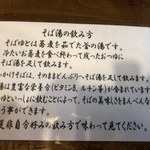 そば湯の飲み方
そばゆとは蕎麦を茹でた釜の湯です。
冷たいお蕎麦を食べ終わって残ったおつゆに
そば湯を足して飲みます。
かけそばは、そのままどんぶりへそば湯を足して飲みます。
湯は豊富な栄養分(ビタミンB、ルチン等)が含まれています
ゆといっしょに飲むことによって、そばの美味しさをまんべんなく
う事ができます。
是非自分好みの飲み方で味わって見てください。